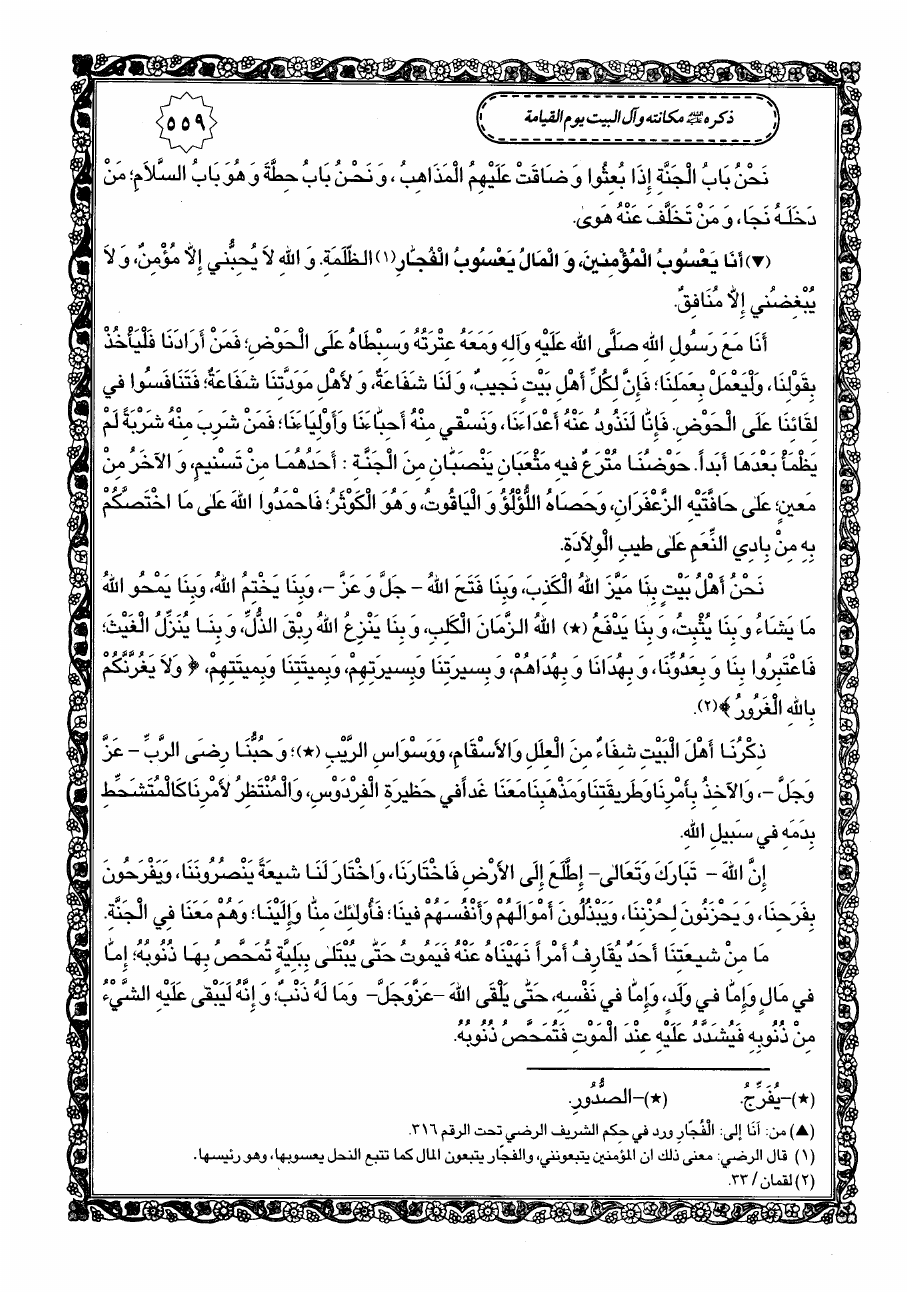 ذكره عليه السلام مكانته وآل البيت يوم القيامة
٥٥٩
نَحْنُ بَابُ الْجَنَّةِ إِذَا بُعِثُوا وَ ضَاقَتْ عَلَيْهِمُ الْمَذَاهِبُ، وَ نَحْنُ بَابُ حِطَّةَ وَ هُوَ بَابُ السَّلاَمِ؛ مَنْ
دَخَلَهُ نَجَا، وَ مَنْ تَخَلَّفَ عَنْهُ هَوىٰ.
(▼) أَنَا يَعْسُوبُ الْمُؤْمِنينَ، وَ الْمَالُ يَعْسُوبُ الْفُجَّارِ(١) الظَّلَمَةِ. وَ اللهِ لاَ يُحِبُّني إِلاَّ مُؤْمِنٌ، وَ لاَ
يُبْغِضُني إِلاَّ مُنَافِقٌ.
أَنَا مَعَ رَسُولِ اللهِ صَلَّى الله عَلَيْهِ وَآلِهِ وَمَعَهُ عِتْرَتُهُ وَسِبْطَاهُ عَلَى الْحَوْضِ؛ فَمَنْ أَرَادَنَا فَلْيَأْخُذْ
بِقَوْلِنَا، وَلْيَعْمَلْ بِعَمَلِنَا؛ فَإِنَّ لِكُلِّ أَهْلِ بَيْتٍ نَجيبٌ، وَ لَنَا شَفَاعَةٌ، وَ لأَهْلِ مَوَدَّتِنَا شَفَاعَةٌ؛ فَتَنَافَسُوا في
لِقَائِنَا عَلَى الْحَوْضِ. فَإِنَّا لَنَذُودُ عَنْهُ أَعْدَاءَنَا، وَنَسْقي مِنْهُ أَحِبَّاءَنَا وَأَوْلِيَاءَنَا؛ فَمَنْ شَرِبَ مِنْهُ شَرْبَةً لَمْ
يَظْمَأْ بَعْدَهَا أَبَداً. حَوْضُنَا مُتْرَعٌ فيهِ مَثْعَبَانِ يَنْصَبَّانِ مِنَ الْجَنَّةِ : أَحَدُهُمَا مِنْ تَسْنيمٍ، وَ الآخَرُ مِنْ
مَعينٍ؛ عَلىٰ حَافَّتَيْهِ الزَّعْفَرَانِ، وَحَصَاهُ اللُّؤْلُؤُ وَ الْيَاقُوتُ، وَ هُوَ الْكَوْثَرُ؛ فَاحْمَدُوا اللهَ عَلىٰ مَا اخْتَصَّكُمْ
بِهِ مِنْ بَادِي النِّعَمِ عَلىٰ طيبِ الْوِلاَدَةِ.
نَحْنُ أَهْلُ بَيْتٍ بِنَا مَيَّزَ اللهُ الْكَذِبَ، وَبِنَا فَتَحَ اللهُ - جَلَّ وَ عَزَّ -، وَبِنَا يَخْتِمُ اللهُ، وَبِنَا يَمْحُو اللهُ
مَا يَشَاءُ وَ بِنَا يُثْبِتُ، وَ بِنَا يَدْفَعُ (★) اللهُ الزَّمَانَ الْكَلِبَ، وَ بِنَا يَنْزِعُ اللهُ رِبْقَ الذُّلِّ، وَ بِنَا يُنَزِّلُ الْغَيْثَ؛
فَاعْتَبِرُوا بِنَا وَ بِعَدُوِّنَا، وَ بِهُدَانَا وَ بِهُدَاهُمْ، وَ بِسيرَتِنَا وَبِسيرَتِهِمْ، وَبِميتَتِنَا وَبِميتَتِهِمْ، ﴿ وَلاَ يَغُرَّنَّكُمْ
بِاللهِ الْغَرُورُ ﴾(٢).
ذِكْرُنَا أَهْلَ الْبَيْتِ شِفَاءٌ مِنَ الْعِلَلِ وَالأَسْقَامِ، وَوَسْوَاسِ الرَّيْبِ (★)؛ وَ حُبُّنَا رِضَى الرَّبِّ - عَزَّ
وَجَلَّ -، وَالآخِذُ بِأَمْرِنَا وَطَريقَتِنَا وَمَذْهَبِنَا مَعَنَا غَداً في حَظيرَةِ الْفِرْدَوْسِ، وَالْمُنْتَظِرُ لأَمْرِنَا كَالْمُتَشَحِّطِ
بِدَمِهِ في سَبيلِ اللهِ.
إِنَّ اللهَ - تَبَارَكَ وَتَعَالىٰ- إِطَّلَعَ إِلَى الأَرْضِ فَاخْتَارَنَا، وَاخْتَارَ لَنَا شيعَةً يَنْصُرُونَنَا، وَيَفْرَحُونَ
بِفَرَحِنَا، وَ يَحْزَنُونَ لِحُزْنِنَا، وَيَبْذُلُونَ أَمْوَالَهُمْ وَأَنْفُسَهُمْ فينَا؛ فَأُولٰئِكَ مِنَّا وَإِلَيْنَا؛ وَهُمْ مَعَنَا فِي الْجَنَّةِ.
مَا مِنْ شيعَتِنَا أَحَدٌ يُقَارِفُ أَمْراً نَهَيْنَاهُ عَنْهُ فَيَمُوتُ حَتّىٰ يُبْتَلىٰ بِبَلِيَّةٍ تُمَحَّصُ بِهَا ذُنُوبُهُ؛ إِمَّا
في مَالٍ وَإِمَّا في وَلَدٍ، وَإِمَّا في نَفْسِهِ، حَتّىٰ يَلْقَى اللهَ -عَزَّوَجَلَّ- وَمَا لَهُ ذَنْبٌ؛ وَ إِنَّهُ لَيَبْقىٰ عَلَيْهِ الشَّيْءُ
مِنْ ذُنُوبِهِ فَيُشَدَّدُ عَلَيْهِ عِنْدَ الْمَوْتِ فَتُمَحَّصُ ذُنُوبُهُ.
(★)-يُفَرِّجُ. (★)-الصُّدُورِ.
(▲) من: أَنَا إلى: الْفُجَّارِ ورد في حِكم الشريف الرضي تحت الرقم ٣١٦.
(١) قال الرضي: معنى ذلك ان المؤمنين يتبعونني، والفجّار يتبعون المال كما تتبع النحل يعسوبها، وهو رئيسها.
(٢) لقمان / ٣٣.